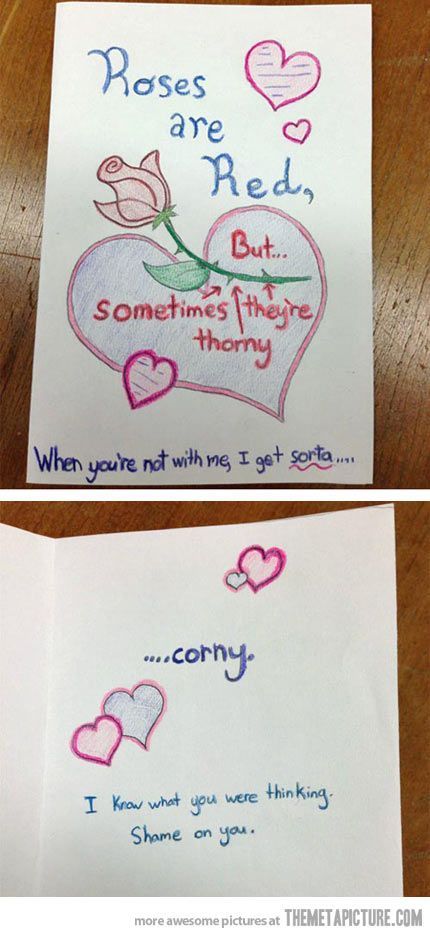 Roses
are
Red,
But...
sometimes they're
thorny
When you're not with me, I get sorta....
....corny.
I know what you were thinking.
Shame on you.
more awesome pictures at THEMETAPICTURE.COM